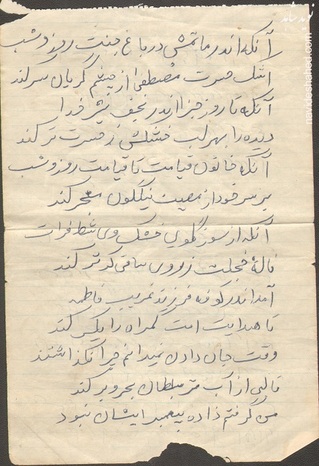 آنکه اندر ماتمش در باغ جنت روز و شب
اشک حسرت مصطفی از چشم گریان سر کند
آنکه تا روز جزا اندر نجف شیر خدا
دیده را بهر لب خشکش ز حسرت تر کند
آنکه خاتون قیامت تا قیامت روز و شب
بر سر خود از مصیبت نیلگون معجر کند
آنکه از سوز گلوی خشک وی شط فرات
ناله خجلت ز روی ساقی کوثر کند
آمد اندر کوفه فرزند غریب فاطمه
تا هدایت امت گمراه را یکسر کند
وقت جان دادن نمیدانم چرا نگذاشتند
تا لبی از آب تر سلطان بحر و بر کند
من گرفتم زاده پیغمبر ایشان نبود
navideshahed.com